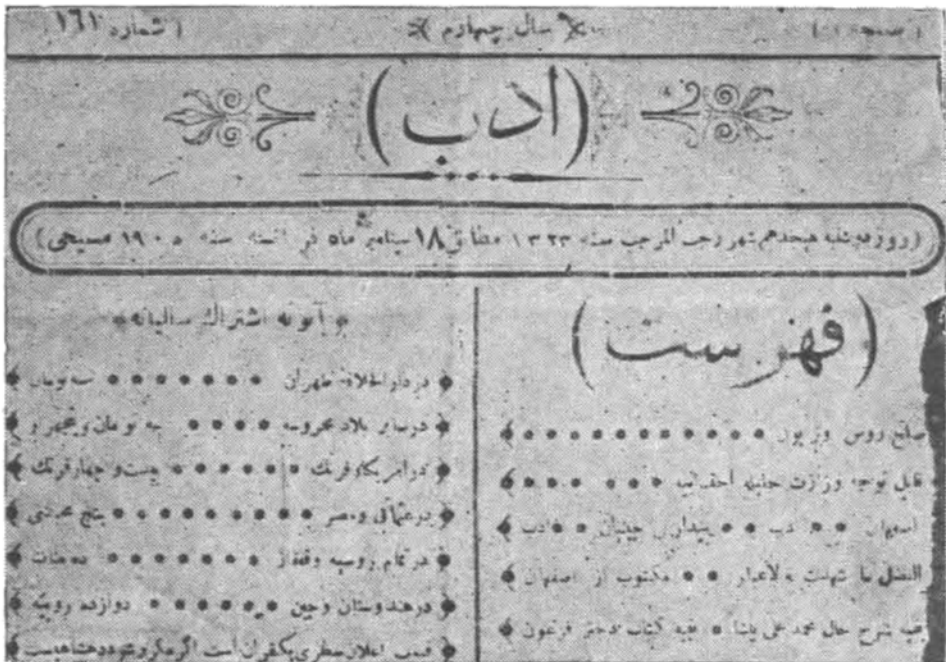 ( صفحه ۱ ) سال چهارم ( شماره ۱۶۱
(ادب)
(روز دوشنبه هیجدهم شهر رجب المرجب سنه ۱۳۲۳ مطابق ۱۸ سپتامبر ماه سنه ۱۹۰۵ مسیحی)
(فهرست)
صلح روس و ژاپون
قابل توجه وزارت جلیله
اصفهان ادب بیداری چینیان ادب
الفضل ما شهدت به الاعداء مکتوب از اصفهان
بقیه شرح حال محمد علی پاشا بقیه کتاب دختر فرعون
آبونه اشتراك سالیانه
در دار الخلافه طهران سه تومان
در سایر بلاد محروسه سه تومان و پنجهزار
در امریکا و فرنك بیست و چهار فرنك
در عثمانی و مصر پنج مجیدی
در تمام روسیه و قفقاز ده منات
در هندوستان و چین دوازده روپیه
قیمت اعلان سطری یکقران است اگر مکرر شود ده شاهیست